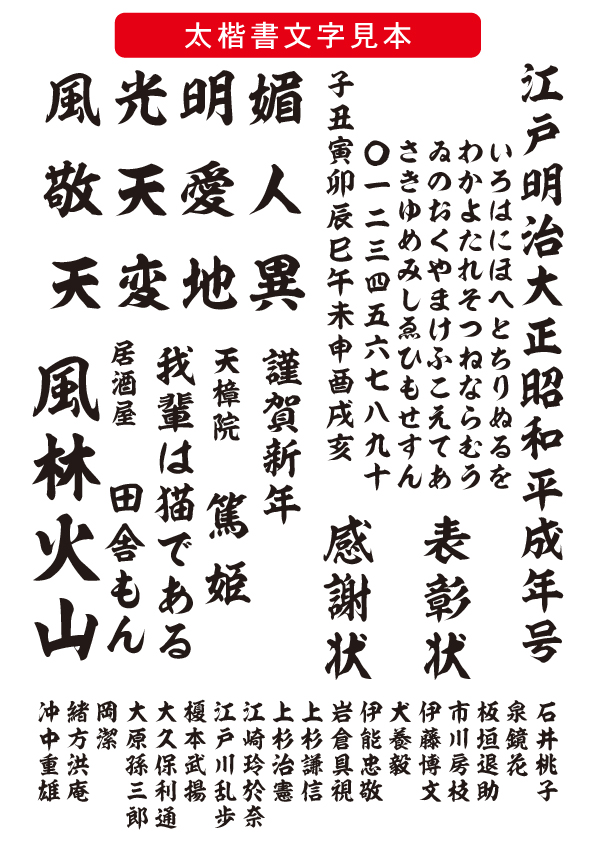 太楷書文字見本
江戸明治大正昭和平成年号
いろはにほへとちりぬるを
わかよたれそつねならむう
ゐのおくやまけふこえてあ
さきゆめみしゑひもせすん
〇一二三四五六七八九十
子丑寅卯辰巳午未申酉戌亥
表彰状
感謝状
媚人異
明愛地
光天変
風敬天
謹賀新年
天樟院
篤姫
我輩は猫である
居酒屋
田舎もん
風林火山
石井桃子
泉鏡花
板垣退助
市川房枝
伊藤博文
犬養毅
伊能忠敬
岩倉具視
上杉謙信
上杉治憲
江崎玲於奈
江戸川乱歩
榎本武揚
大久保利通
大原孫三郎
岡潔
緒方洪庵
沖中重雄